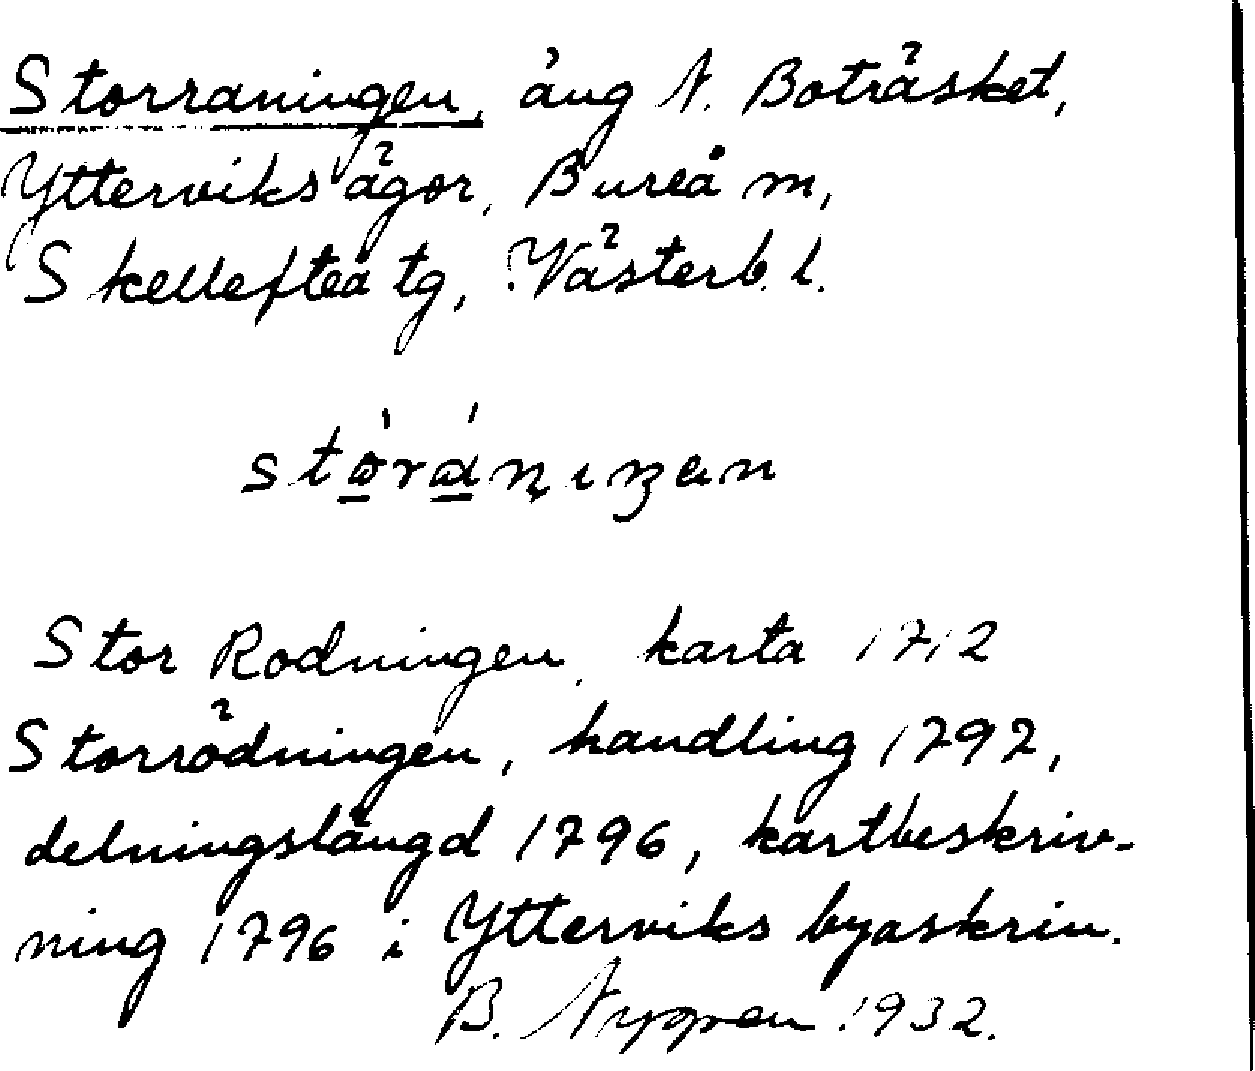 Storraningen, äng N. Boträsket,
Ytterviks ägor, Bureå m,
Skellefteå tg, Västerb. l.
stòrániŋen
Stor Rodningen, karta 1712
Storrödningen, handling 1792,
delningslängd 1796, kartbeskriv-
ning 1796 i Ytterviks byaskrin.
B. Nygren 1932.